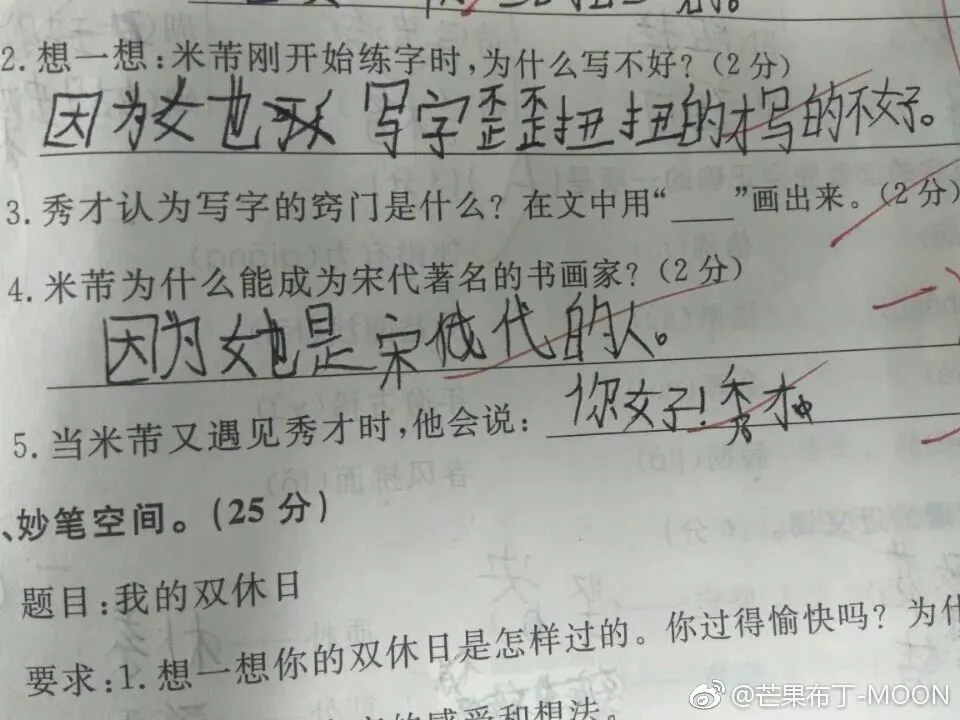 2.想一想:米芾刚开始练字时,为什么写不好?(2分)
因为她写字歪歪扭扭的才写的不好。
3.秀才认为写字的窍门是什么?在文中用“____”画出来。(2分)
4.米芾为什么能成为宋代著名的书画家?(2分)
因为她是宋代的人。
5.当米芾又遇见秀才时,他会说:你好!秀才
、妙笔空间。(25分)
题目:我的双休日
要求:1.想一想你的双休日是怎样过的。你过得愉快吗?为什
的感受和想法。
@芒果布丁-MOON